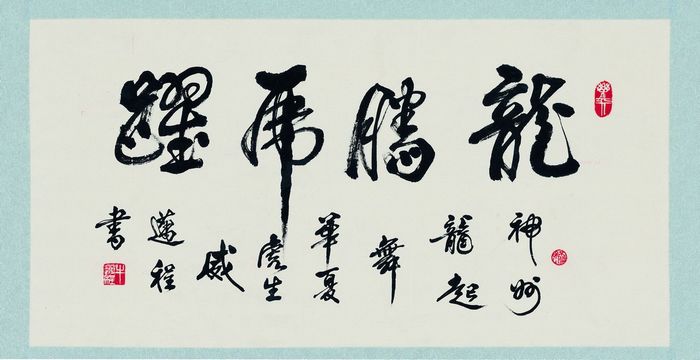 龍騰虎躍
神州
龍起
舞
華夏
虎生
威
邁程
書